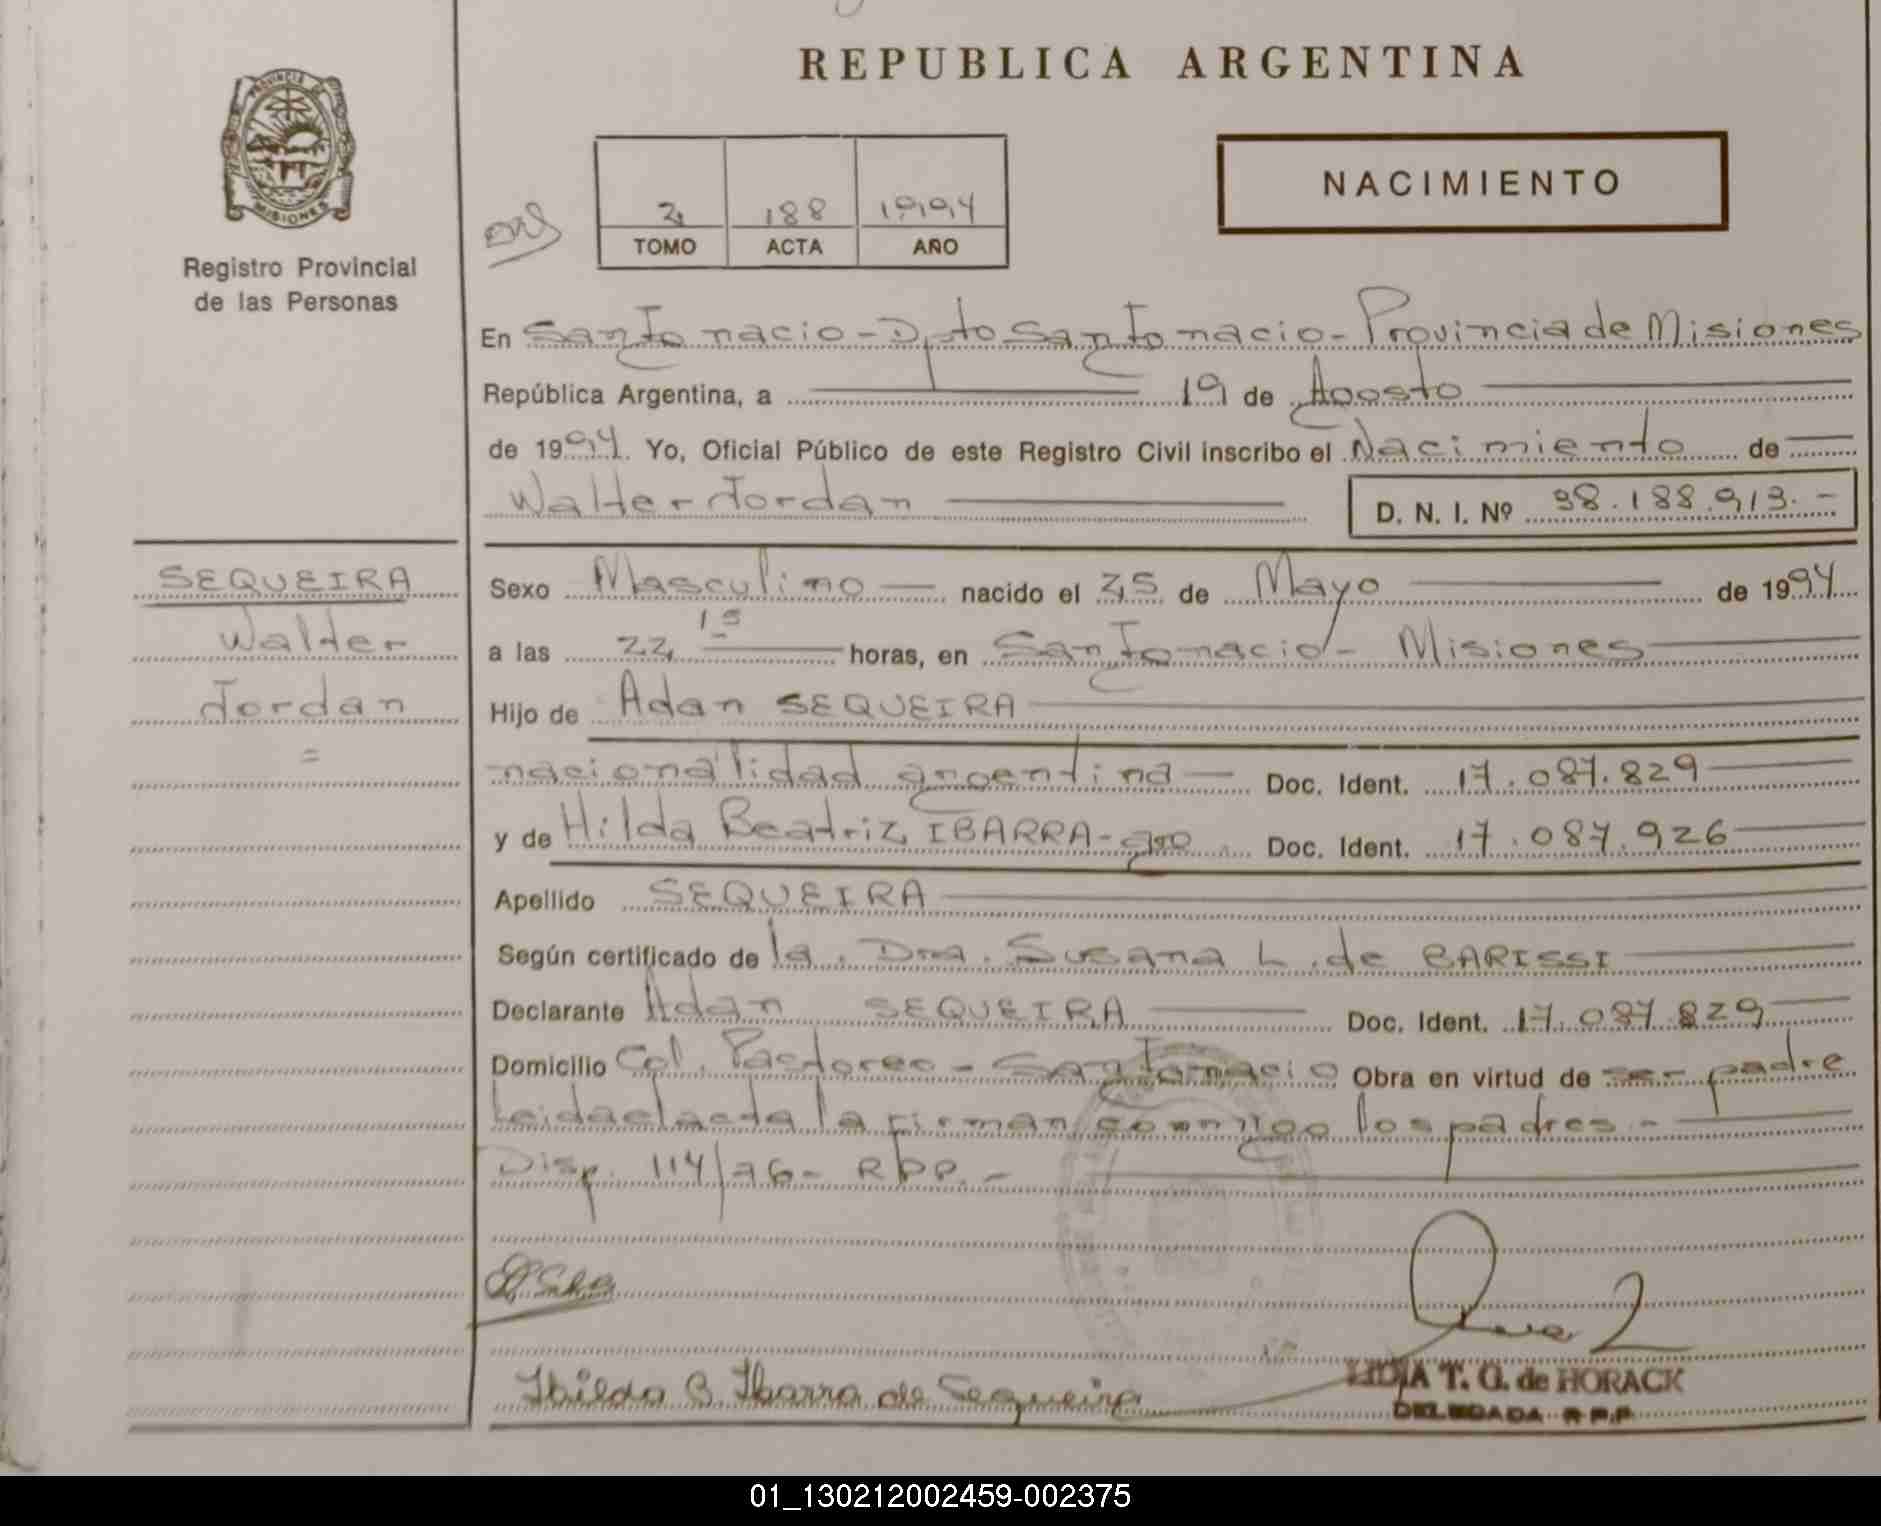 REPUBLICA ARGENTINA
PROVINCIA DE
MISIONES
Registro Provincial
de las Personas
NACIMIENTO
2 188 1994
TOMO ACTA AÑO
En San Ignacio - Dpto San Ignacio - Provincia de Misiones
República Argentina, a 19 de Agosto
de 1994. Yo, Oficial Público de este Registro Civil inscribo el Nacimiento de
Walter Jordan D. N. I. Nº 38.188.913.-
SEQUEIRA
Walter
Jordan
=
Sexo Masculino nacido el 25 de Mayo de 1994
a las 22, 15 horas, en San Ignacio - Misiones
Hijo de Adan SEQUEIRA
nacionalidad argentina Doc. Ident. 17.087.829
y de Hilda Beatriz IBARRA - arg. Doc. Ident. 17.087.926
Apellido SEQUEIRA
Según certificado de la Dra. Susana L. de BARISSI
Declarante Adan SEQUEIRA Doc. Ident. 17.087.829
Domicilio Col. Pastoreo - San Ignacio Obra en virtud de ser padre
Leida el acta la firman conmigo los padres.-
Disp. 114/76 - RPP.-
Hilda B. Ibarra de Sequeira
LIDIA T. G. de HORACK
DELEGADA R.P.P.
01_130212002459-002375